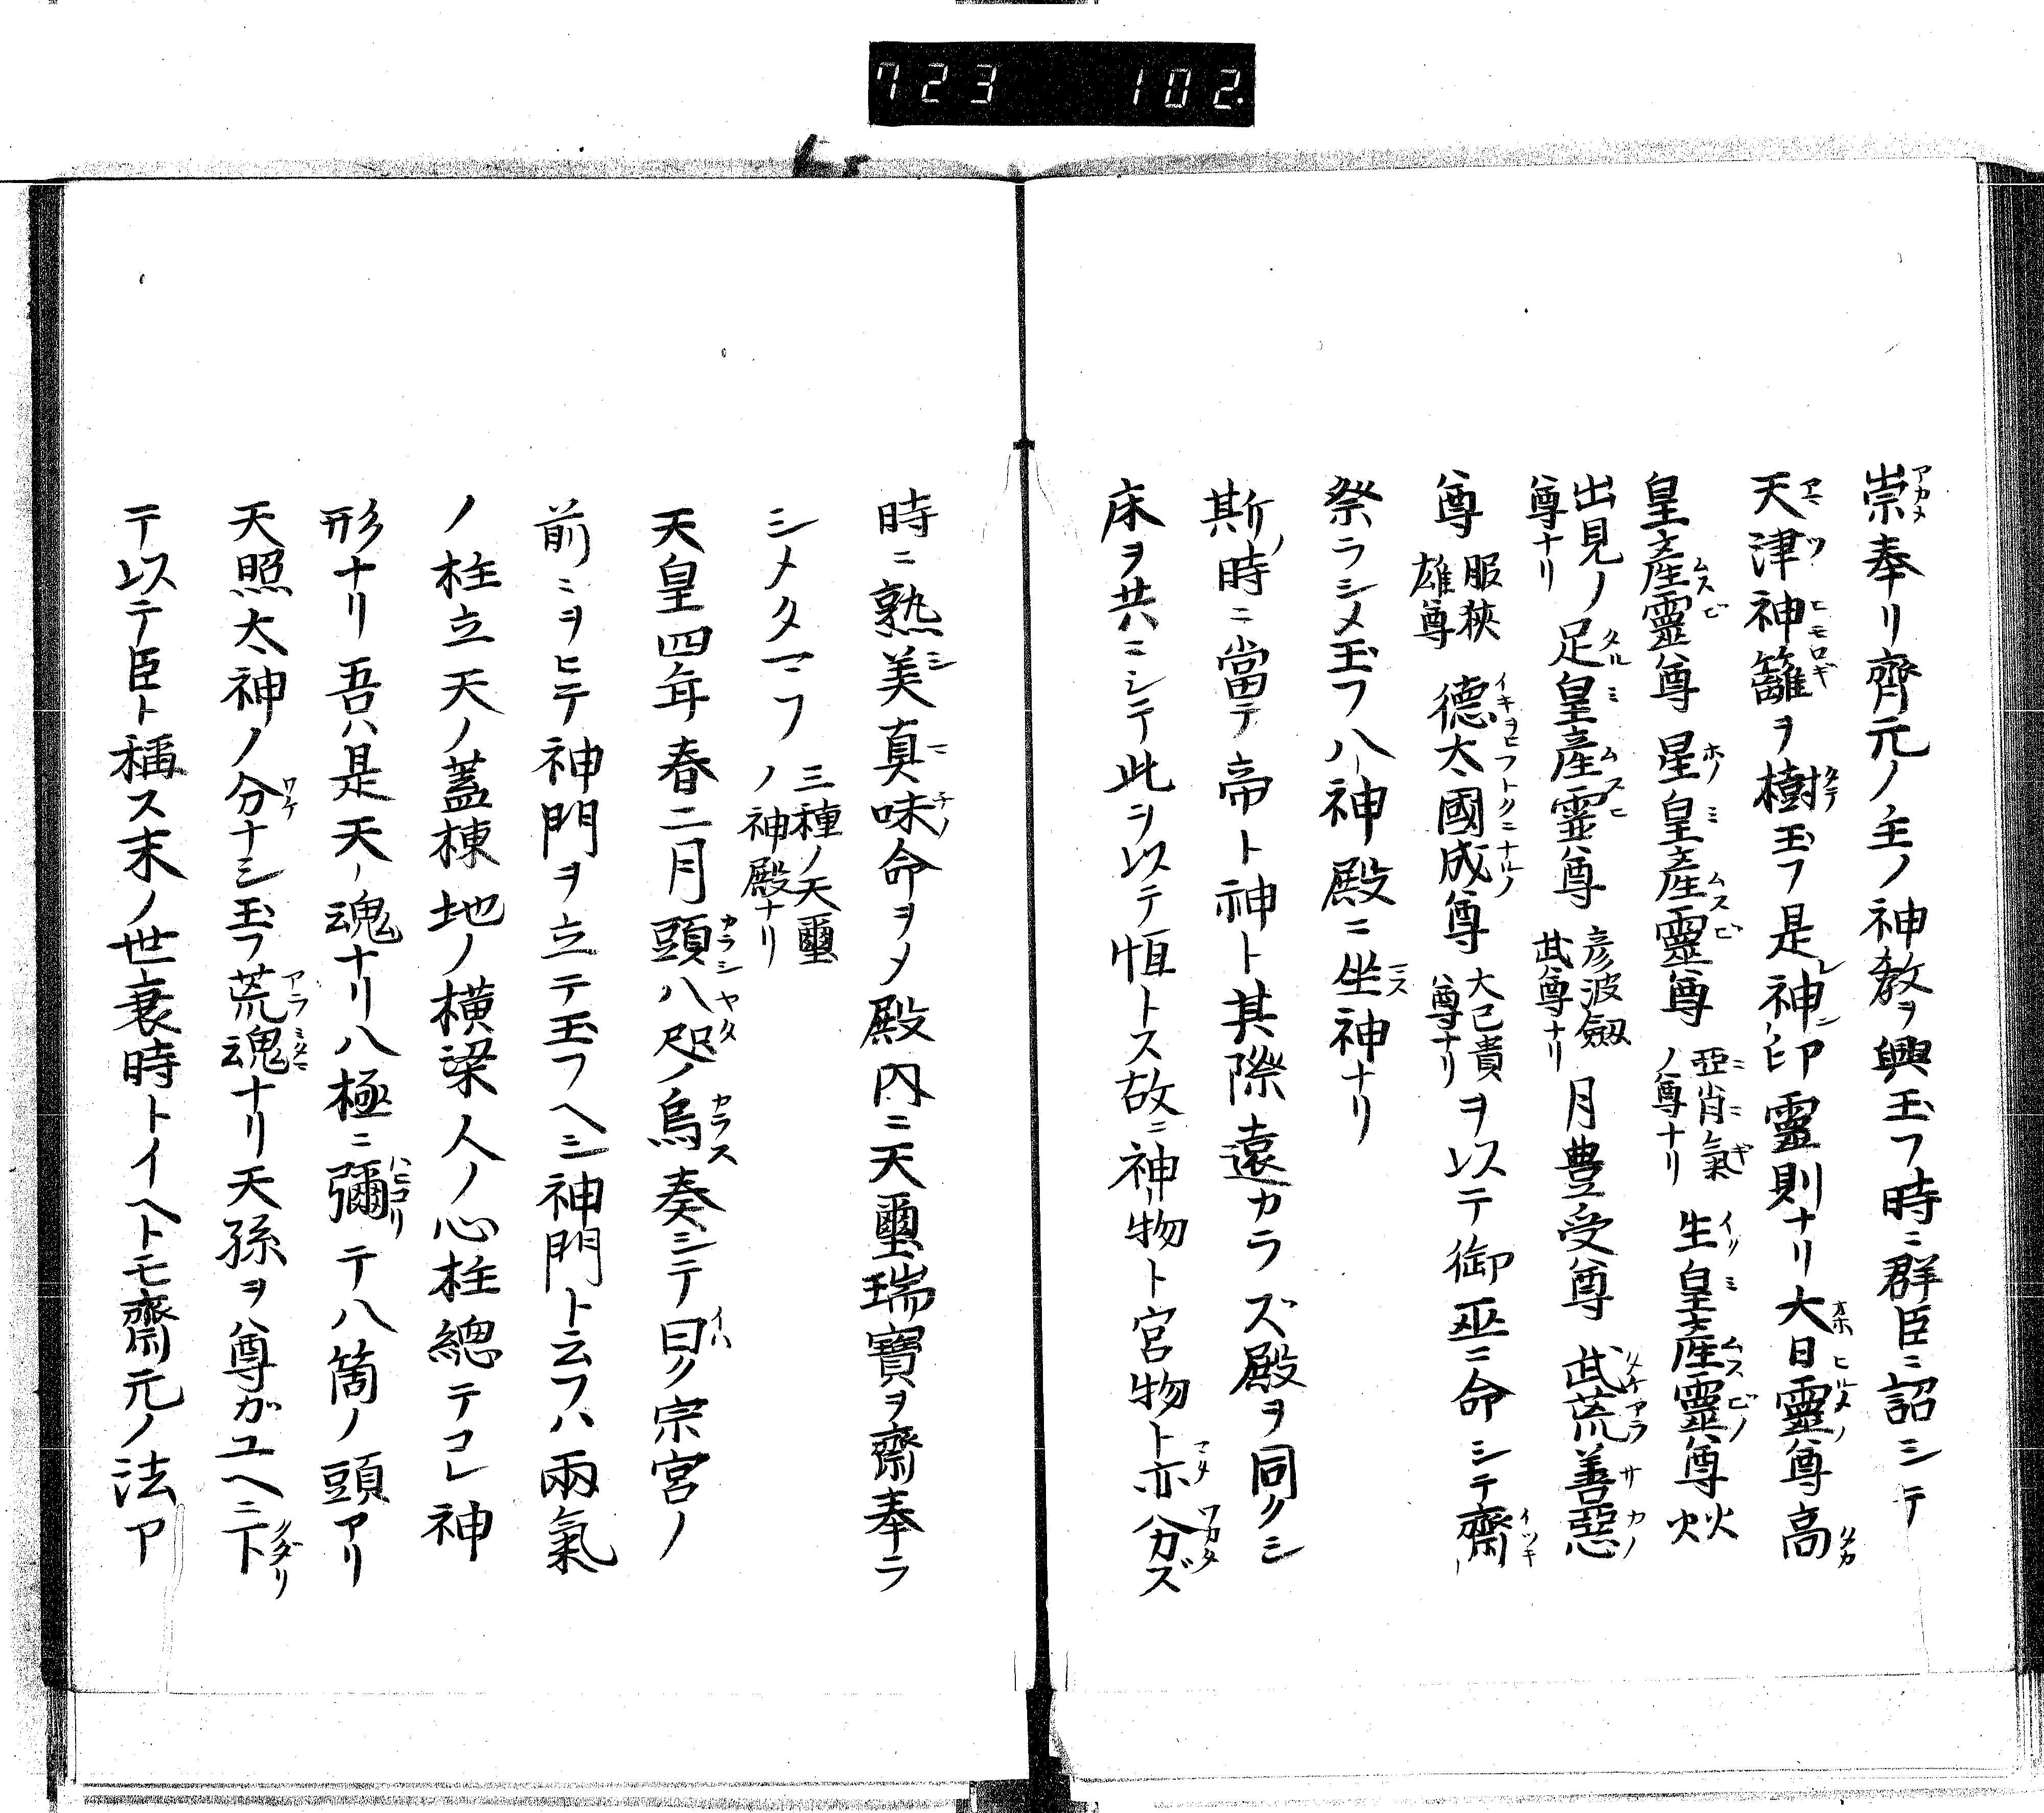 723 102.
崇奉リ齊元ノ主ノ神教ヲ興玉フ時ニ群臣ニ詔シテ
天津神籬ヲ樹玉フ是神印靈則ナリ大日靈尊高
皇產靈尊星皇產靈尊亞肖氣ノ尊ナリ生皇產靈尊火火
出見ノ尊ナリ足皇產靈尊彥波劔武尊ナリ月豊受尊武荒善惡
尊服狹雄尊德太國成尊大己貴尊ナリヲ以テ御巫ニ命シテ齋
祭ラシメ玉フ八神殿ニ坐神ナリ
斯時ニ當テ帝ト神ト其際遠カラズ殿ヲ同クシ
床ヲ共ニシテ此ヲ以テ恒トス故ニ神物ト宮物ト亦分カズ
時ニ熟美真味命ヲメ殿内ニ天璽瑞寶ヲ齋奉ラ
シメタマフ三種ノ天璽ノ神殿ナリ
天皇四年春二月頭八咫ノ烏奏シテ曰ク宗宮ノ
前ニヲヒテ神門ヲ立テ玉フヘシ神門ト云フハ兩氣
ノ柱立天ノ蓋棟地ノ橫梁人ノ心柱總テコレ神
形ナリ吾ハ是天ノ魂ナリ八極ニ彌テ八箇ノ頭アリ
天照太神ノ分ナシ玉フ荒魂ナリ天孫ヲハ尊ガユヘニ下
テ以テ臣ト稱ス末ノ世衰時トイヘトモ齋元ノ法ア